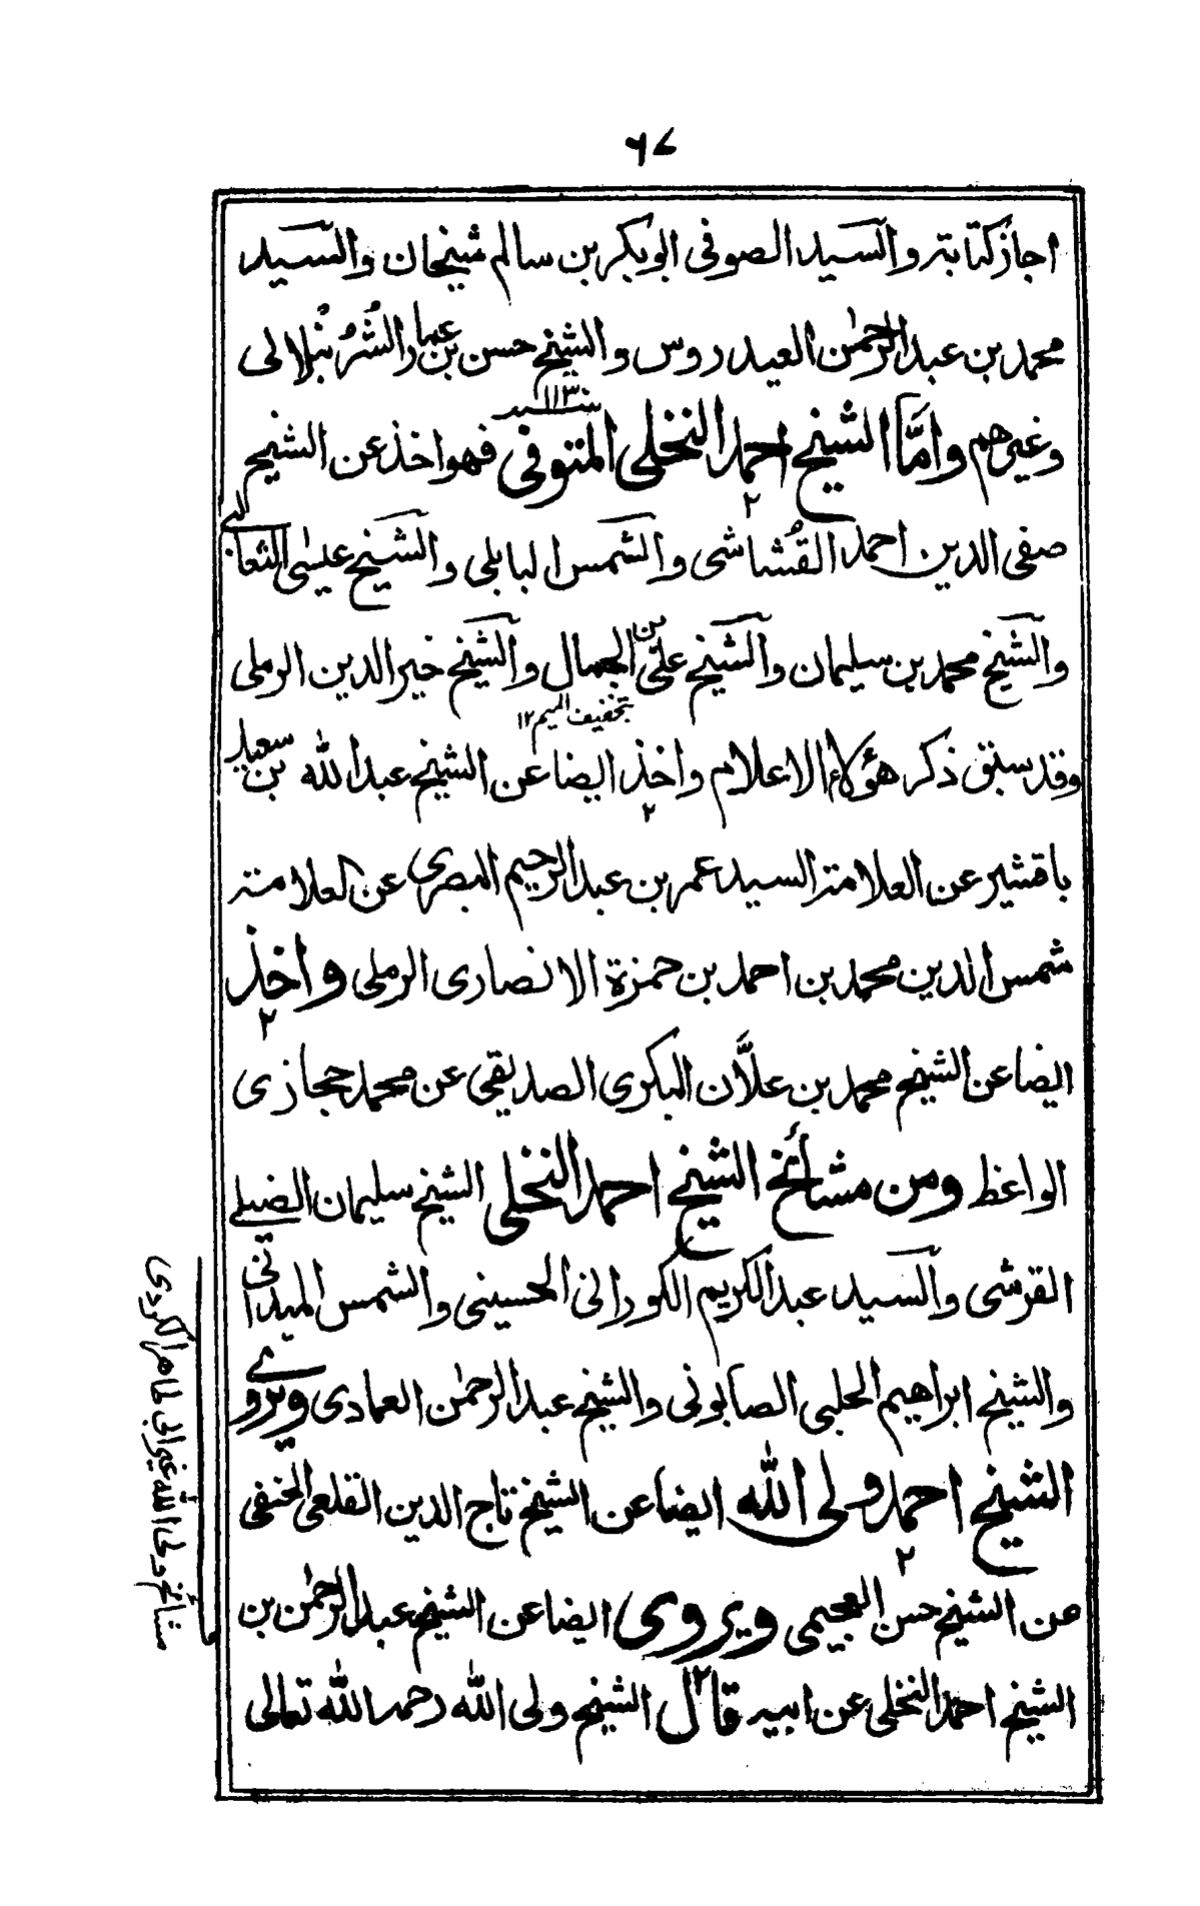 ٦٧
اجاز كتابته والسيد الصوفى ابو بكر بن سالم شيخان والسيد
محمد بن عبد الرحمٰن العيدروس والشيخ حسن بن عمار الشُّرُنْبُلالى
وغيرهم وامَّا الشيخ احمد النخلى المتوفى سنة ١١٣٠ فهو اخذ عن الشيخ
صفى الدين احمد القُشاشى والشمس البابلى والشيخ عيسٰى الثعالبى
والشيخ محمد بن سليمان والشيخ علىّ بن الجمال والشيخ خير الدين الرملى
بتخفيف الميم ١٢
وقد سبق ذكر هؤلاء الاعلام واخذ ايضا عن الشيخ عبد الله بن سعيد
باقشير عن العلامة السيد عمر بن عبد الرحيم البصرى عن العلامة
شمس الدين محمد بن احمد بن حمزة الانصارى الرملى واخذ
ايضا عن الشيخ محمد بن علاَّن البكرى الصديقى عن محمد حجازى
الواعظ ومن مشائخ الشيخ احمد النخلى الشيخ سليمان الضيلى
القرشى والسيد عبد الكريم الكورانى الحسينى والشمس الميدانى
والشيخ ابراهيم الحلبى الصابونى والشيخ عبد الرحمٰن العمادى ويروى
الشيخ احمد ولى الله ايضا عن الشيخ تاج الدين القلعى الحنفى
عن الشيخ حسن العجيمى ويروى ايضا عن الشيخ عبد الرحمٰن بن
الشيخ احمد النخلى عن ابيه قال الشيخ ولى الله رحمه الله تعالى
مشائخ ولى الله غير ابى طاهر الكردى